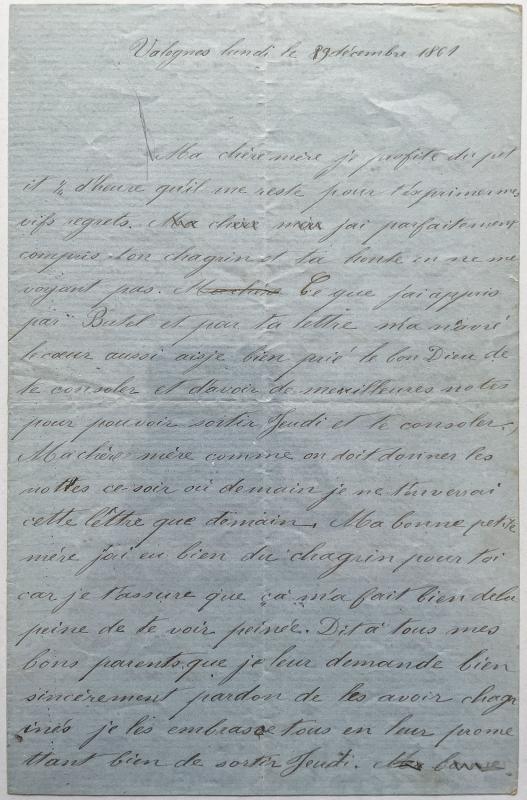 Valognes lundi le 29 décembre 1861
Ma chère mère je profite du pet
it ¼ d'heure qu'il me reste pour t'exprimer mes
vifs regrets. Ma chère mère j'ai parfaitement
compris ton chagrin et ta honte en ne me
voyant pas. Ce que j'ai appris
par Butel et par ta lettre m'a navré
le cœur aussi ai-je bien prié le bon Dieu de
te consoler et d'avoir de meilleures notes
pour pouvoir sortir Jeudi et te consoler.
Ma chère mère comme on doit donner les
nottes ce-soir où demain je ne t'enverrai
cette lettre que demain. Ma bonne petite
mère j'ai eu bien du chagrin pour toi
car je t'assure que ça m'a fait bien de la
peine de te voir peinée. Dit à tous mes
bons parents que je leur demande bien
sincèrement pardon de les avoir chagr
inés je les embrasse tous en leur prome
ttant bien de sortir Jeudi. Ma bonne